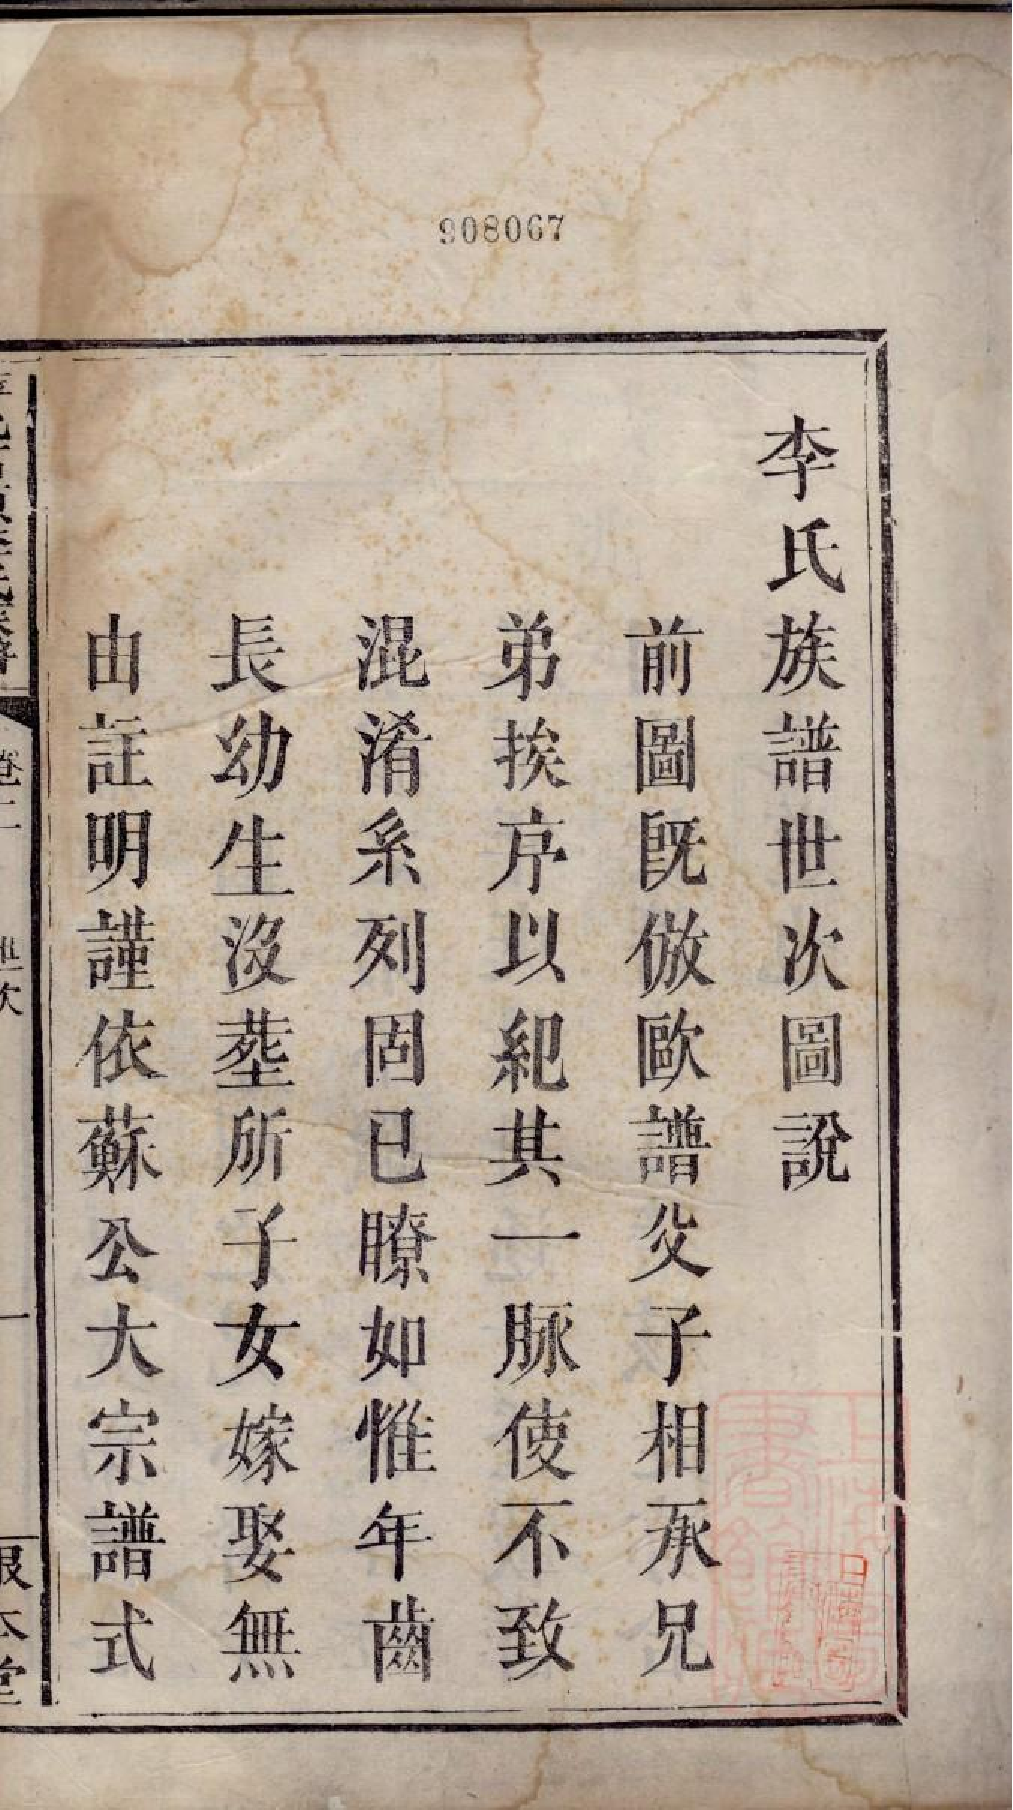 908067
李氏族譜世次圖說
前圖既倣歐譜父子相承兄
弟挨序以紀其一脉使不致
混淆系列固已瞭如惟年齒
長幼生沒塟所子女嫁娶無
由註明謹依蘇公大宗譜式
卷二
世次
一